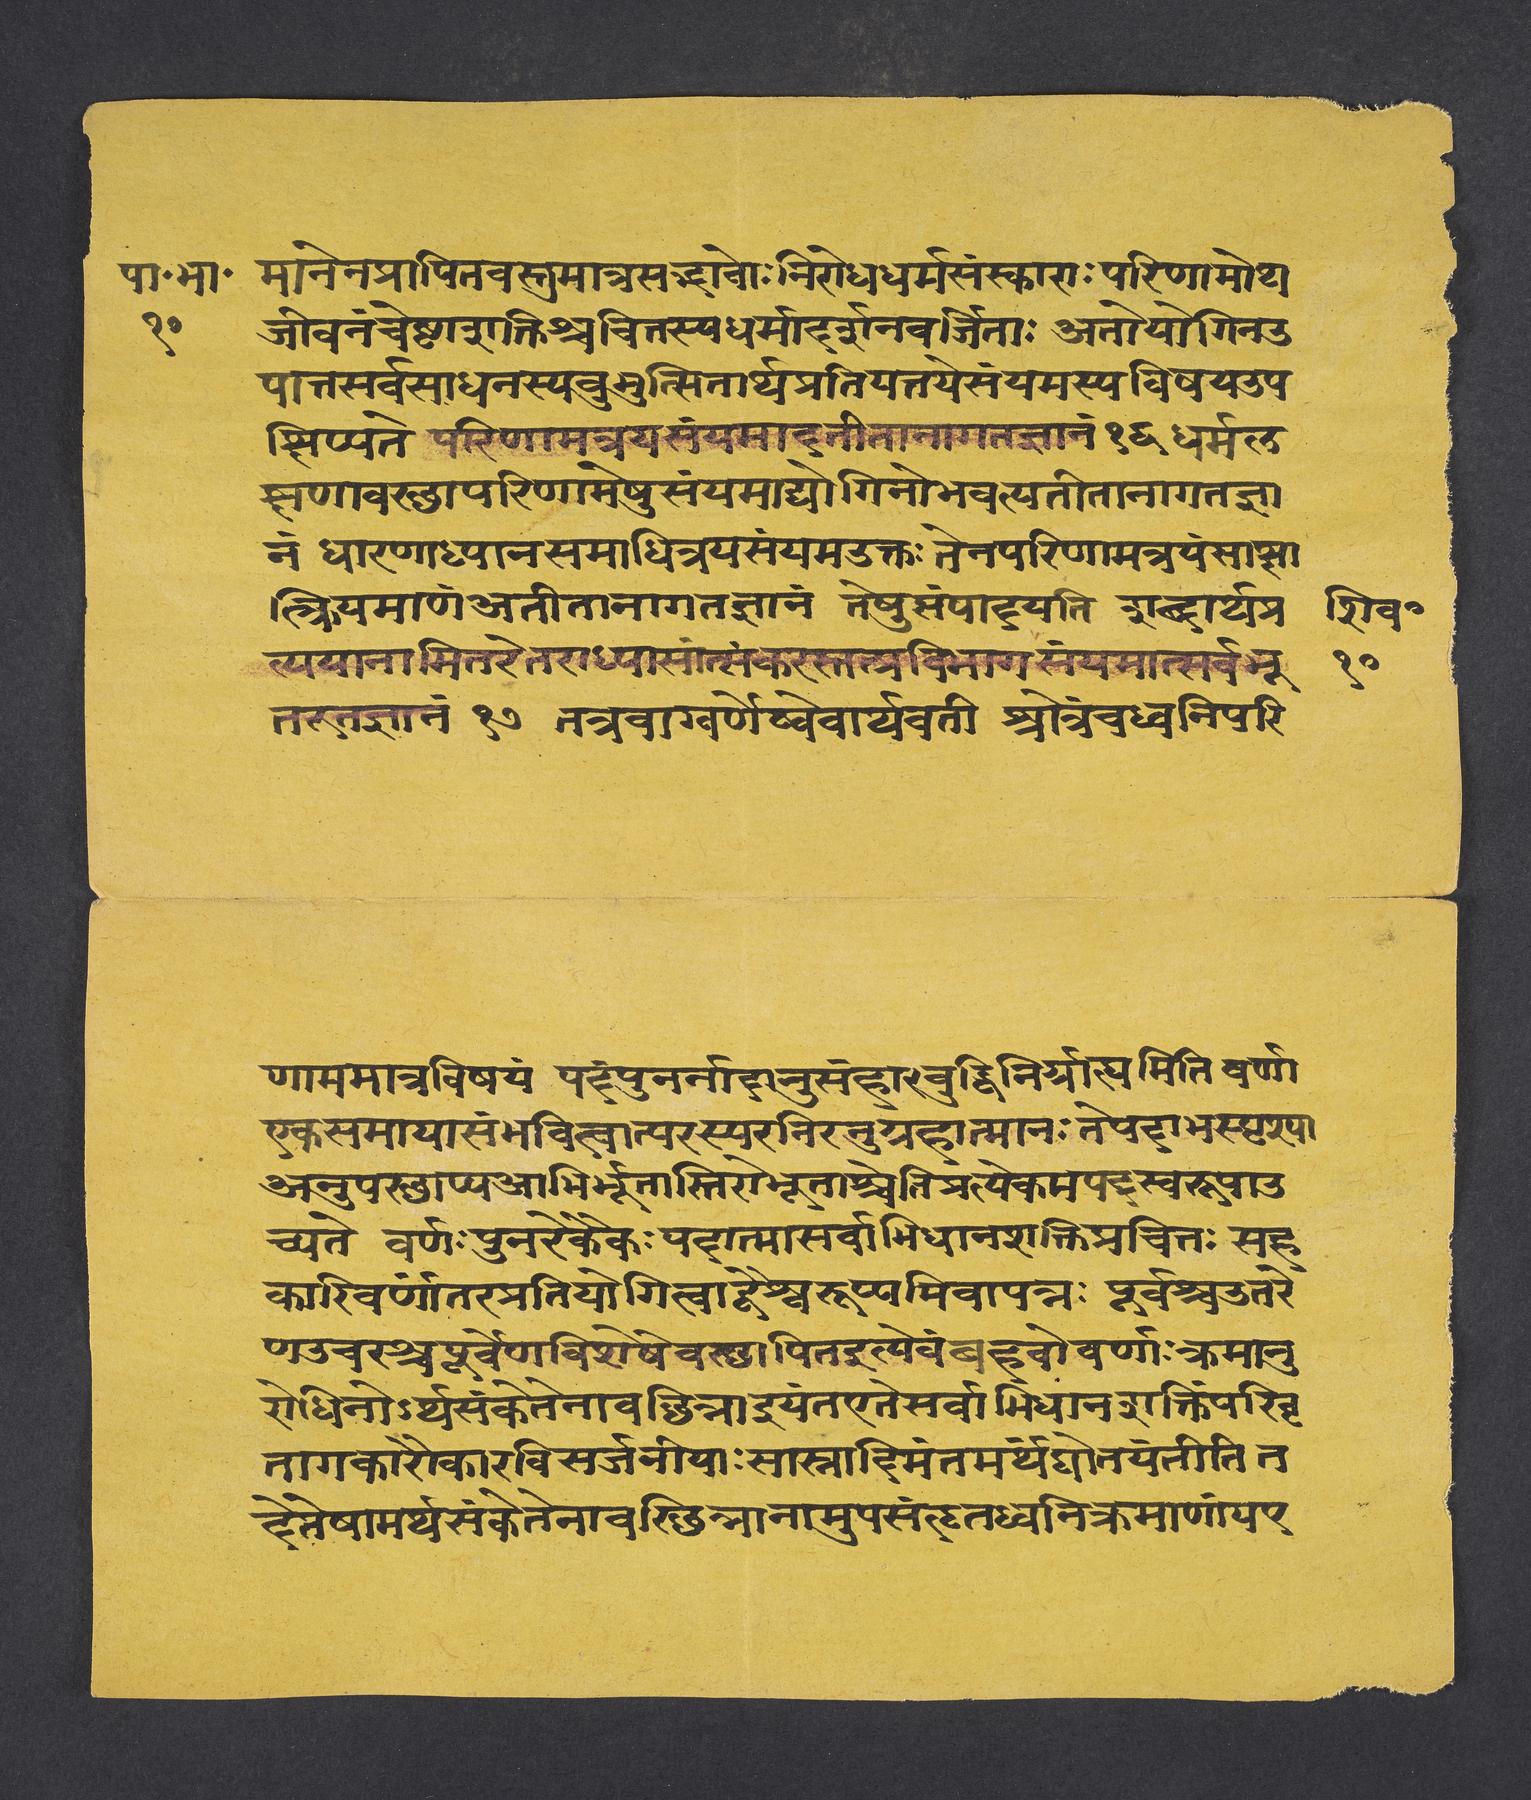 पा॰भा॰
१०
मानेनप्रापितवस्तुमात्रसद्भावोः निरोधधर्मसंस्काराः परिणामोथ
जीवनंचेष्टाशक्तिश्चचित्तस्यधर्मादर्शनवर्जिताः अतोयोगिनउ
पात्तसर्वसाधनस्यवुभुत्सितार्थप्रतिपत्तयेसंयमस्यविषयउप
क्षिप्यते परिणामत्रयसंयमादतीतानागतज्ञानं १६ धर्मल
क्षणावस्थापरिणामेषुसंयमाद्योगिनोभवत्यतीतानागतज्ञा
नं धारणाध्यानसमाधित्रयसंयमउक्तः तेनपरिणामत्रयंसाक्षा
त्क्रियमाणंअतीतानागतज्ञानं तेषुसंपादयति शब्दार्थप्र
त्ययानामितरेतराध्यासात्संकरस्तत्प्रविभागसंयमात्सर्वभू
तरुतज्ञानं १७ तत्रवाग्वर्णेष्वेवार्थवती श्रोत्रंचध्वनिपरि
शिव॰
१०
णाममात्रविषयं पदंपुनर्नादानुसंहारवुद्धिनिर्ग्राह्यमिति वर्णा
एकसमायासंभवित्वात्परस्परनिरनुग्रहात्मानः तेपदाभस्पृश्या
अनुपस्थाप्यआभिर्भूतास्तिरोभूताश्चेतिप्रत्येकमपदस्वरूपाउ
च्यते वर्णः पुनरेकैकः पदात्मासर्वाभिधानशक्तिप्रचित्तः सह
कारिवर्णांतरप्रतियोगित्वाद्वैश्वरूप्यमिवापन्नः पूर्वश्चउतरे
णउचरश्चपूर्वेणविशेषेवस्थापितइत्येवंबहवोवर्णाः क्रमानु
रोधिनोऽर्थसंकेतेनावछिन्नाइयंतएतेसर्वाभिधानशक्तिंपरिवृ
तागकारौकारविसर्जनीयाः सास्नादिमंतमर्थंद्योतयंतीति त
देतेषामर्थसंकेतेनावछिन्नानामुपसंहृतध्वनिक्रमाणांयए